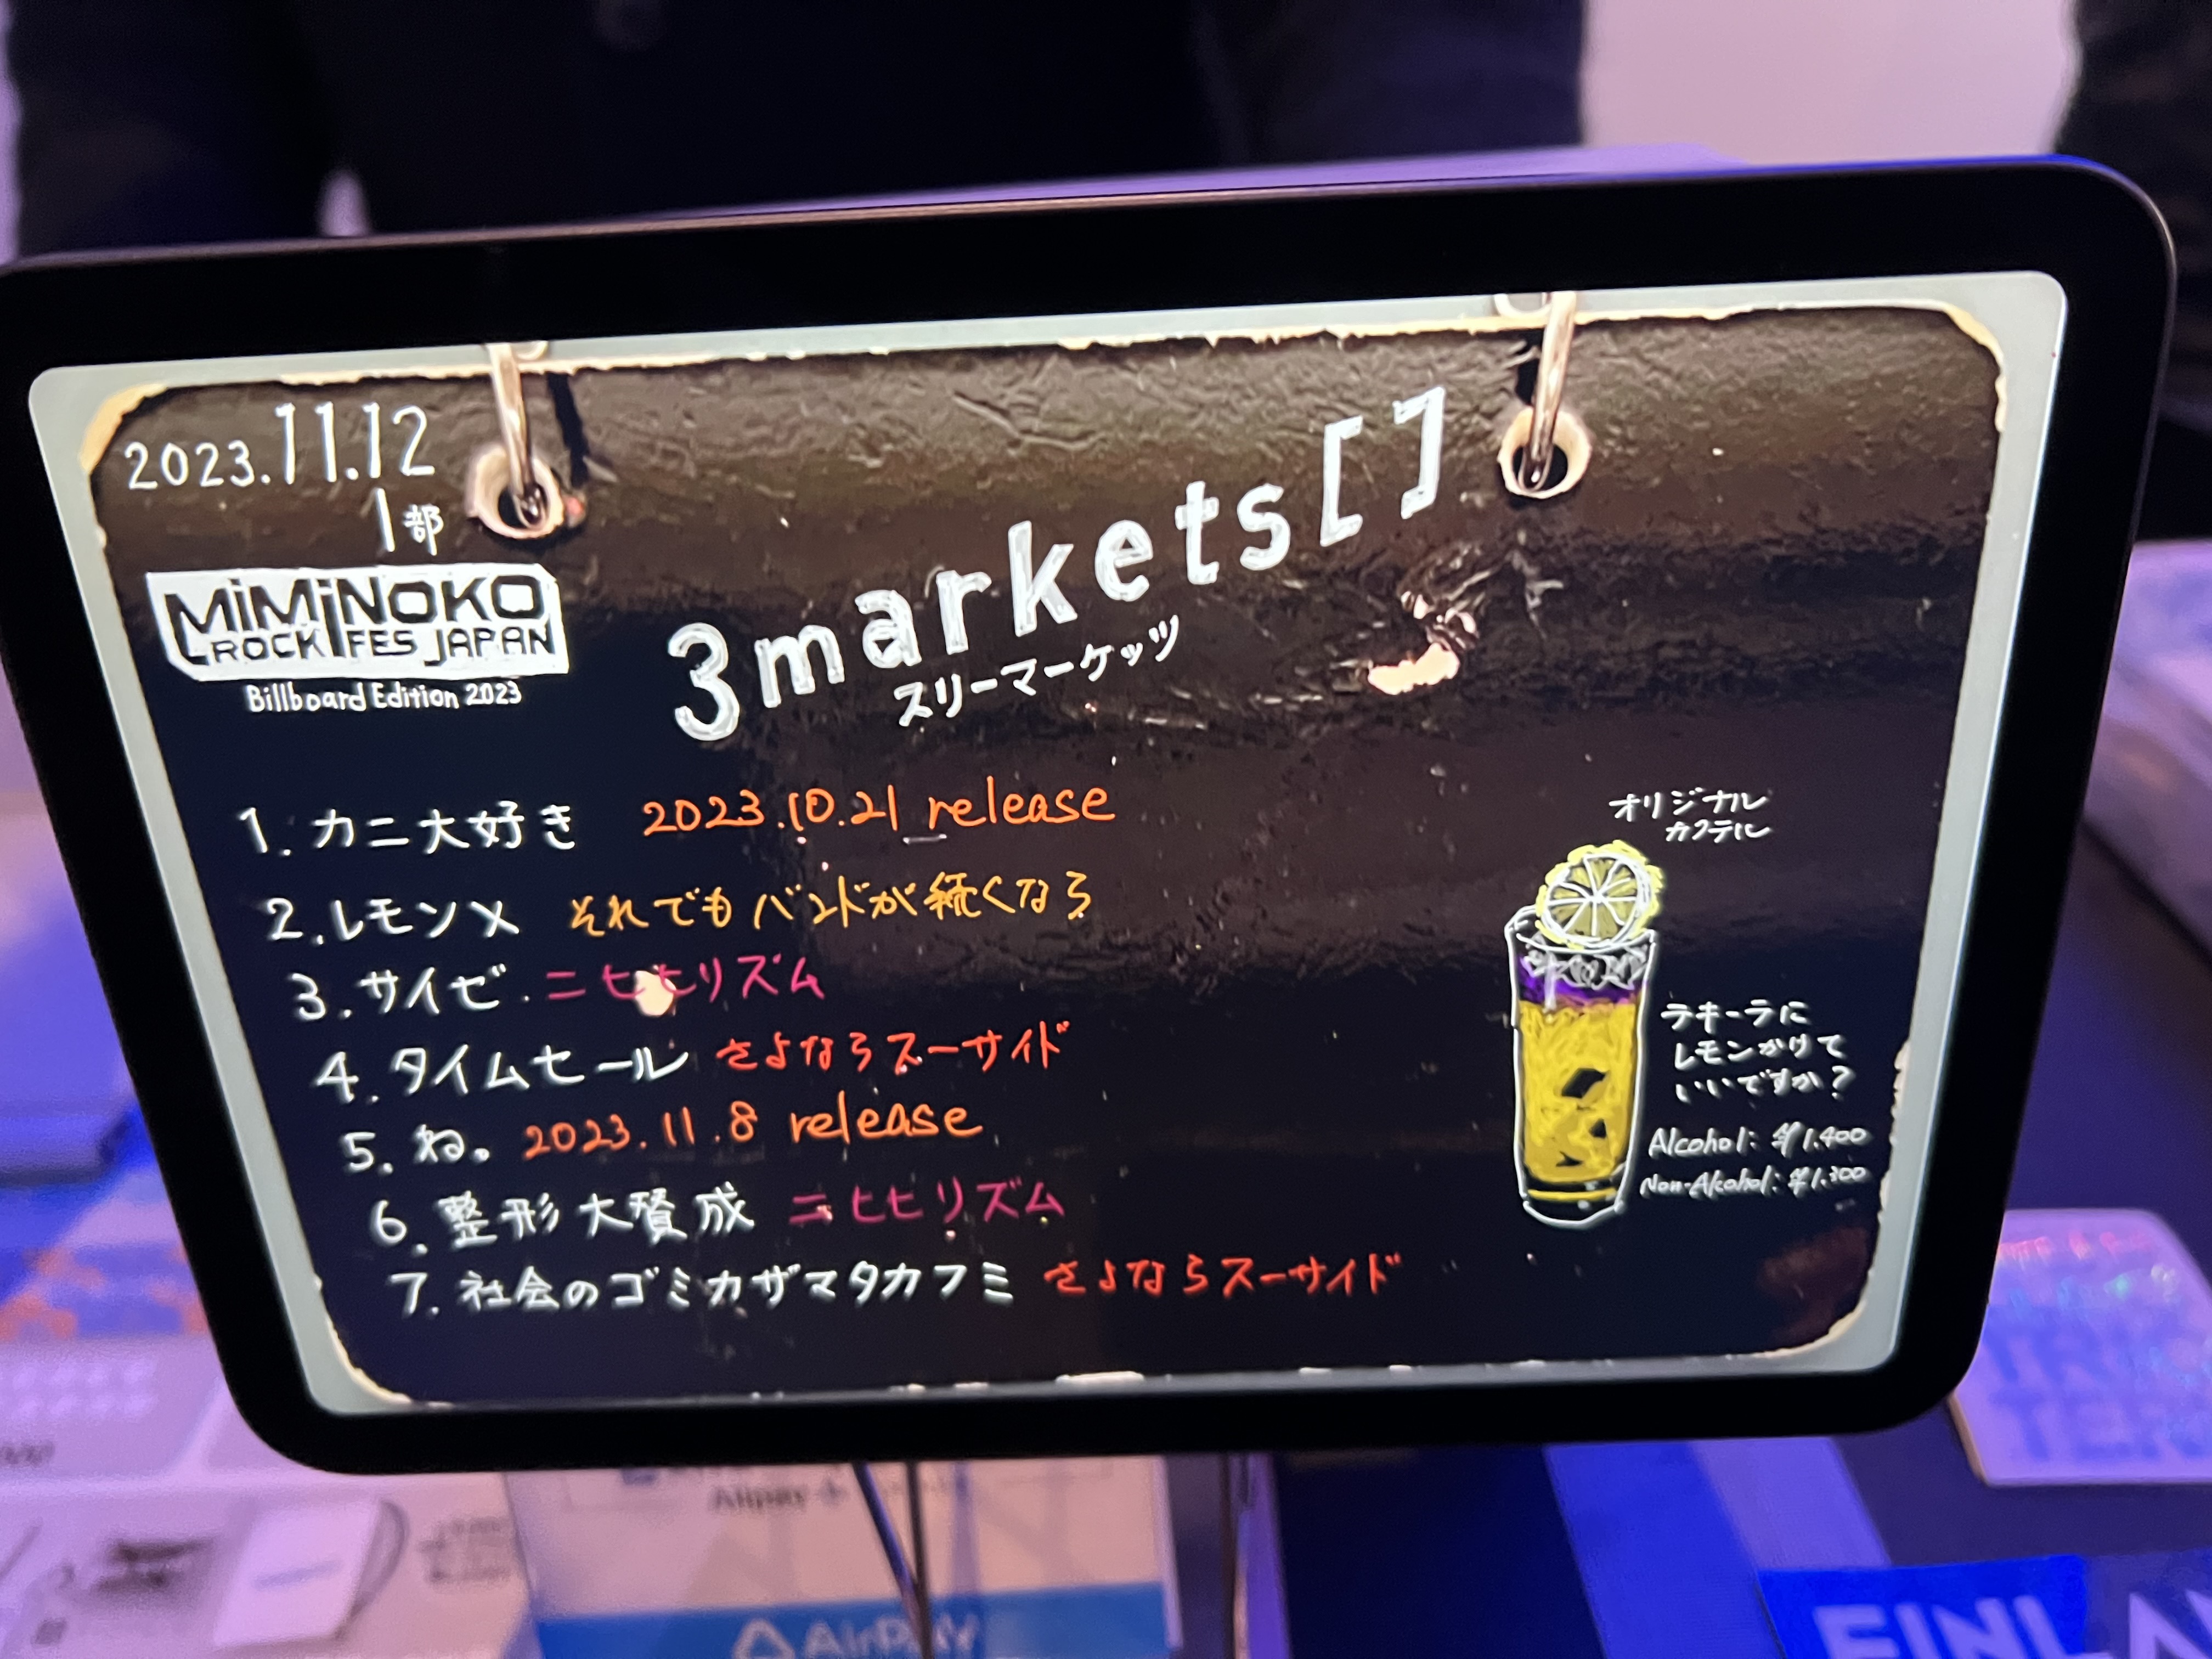 2023.11.12
1部
MiMiNOKO
ROCK FES JAPAN
Billboard Edition 2023
3markets[]
スリーマーケッツ
1. カニ大好き 2023.10.21 release
2. レモン× それでもバンドが続くなら
3. サイゼ. ニヒヒリズム
4. タイムセール さよならスーサイド
5. ね。 2023.11.8 release
6. 整形大賛成 ニヒヒリズム
7. 社会のゴミカザマタカフミ さよならスーサイド
オリジナル
カクテル
ラキーラに
レモンかけて
いいですか?
Alcohol: ¥1.400
Non-Alcohol: ¥1.300
Alipay
AirPAY
FINLA